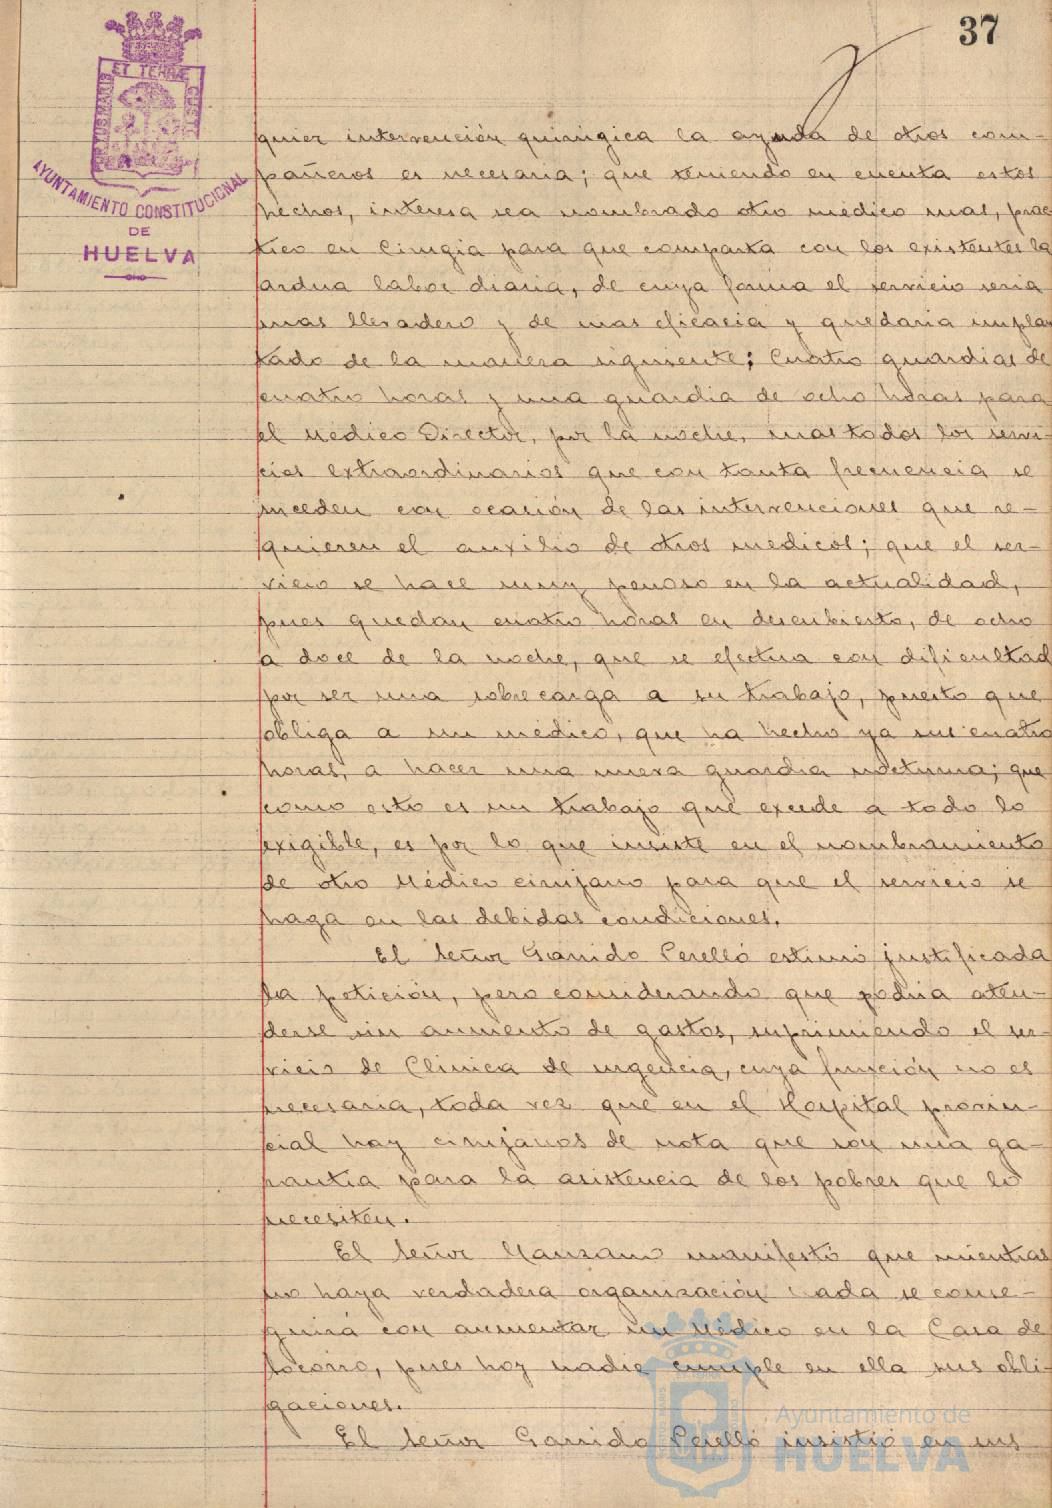 37
PORTUS MARIS ET TERRAE CUSTODIA
AYUNTAMIENTO CONSTITUCIONAL
DE
HUELVA
quier intervención quirúrgica la ayuda de otros com-
pañeros es necesaria; que teniendo en cuenta estos
hechos, interesa sea nombrado otro médico mas, prac-
tico en Cirugia para que comparta con los existentes la
ardua labor diaria, de cuya forma el servicio seria
mas llevadero y de mas eficacia y quedaria implan-
tado de la manera siguiente; Cuatro guardias de
cuatro horas y una guardia de ocho horas para
el Médico Director, por la noche, mas todos los servi-
cios extraordinarios que con tanta frecuencia se
suceden con ocasión de las intervenciones que re-
quieren el auxilio de otros medicos; que el ser-
vicio se hace muy penoso en la actualidad,
pues quedan cuatro horas en descubierto, de ocho
a doce de la noche, que se efectua con dificultad
por ser una sobrecarga a su trabajo, puesto que
obliga a un médico, que ha hecho ya sus cuatro
horas, a hacer una nueva guardia nocturna; que
como esto es un trabajo que excede a todo lo
exigible, es por lo que insiste en el nombramiento
de otro Médico cirujano para que el servicio se
haga en las debidas condiciones.
El Señor Garrido Perelló estimó justificada
la petición, pero considerando que podria aten-
derse sin aumento de gastos, suprimiendo el ser-
vicio de Clinica de urgencia, cuya función no es
necesaria, toda vez que en el Hospital provin-
cial hay cirujanos de nota que son una ga-
rantia para la asistencia de los pobres que lo
necesiten.
El Señor Manzano manifestó que mientras
no haya verdadera organización nada se conse-
guirá con aumentar un Médico en la Casa de
Socorro, pues hoy nadie cumple en ella sus obli-
gaciones.
El Señor Garrido Perelló insistió en sus
Ayuntamiento de
HUELVA